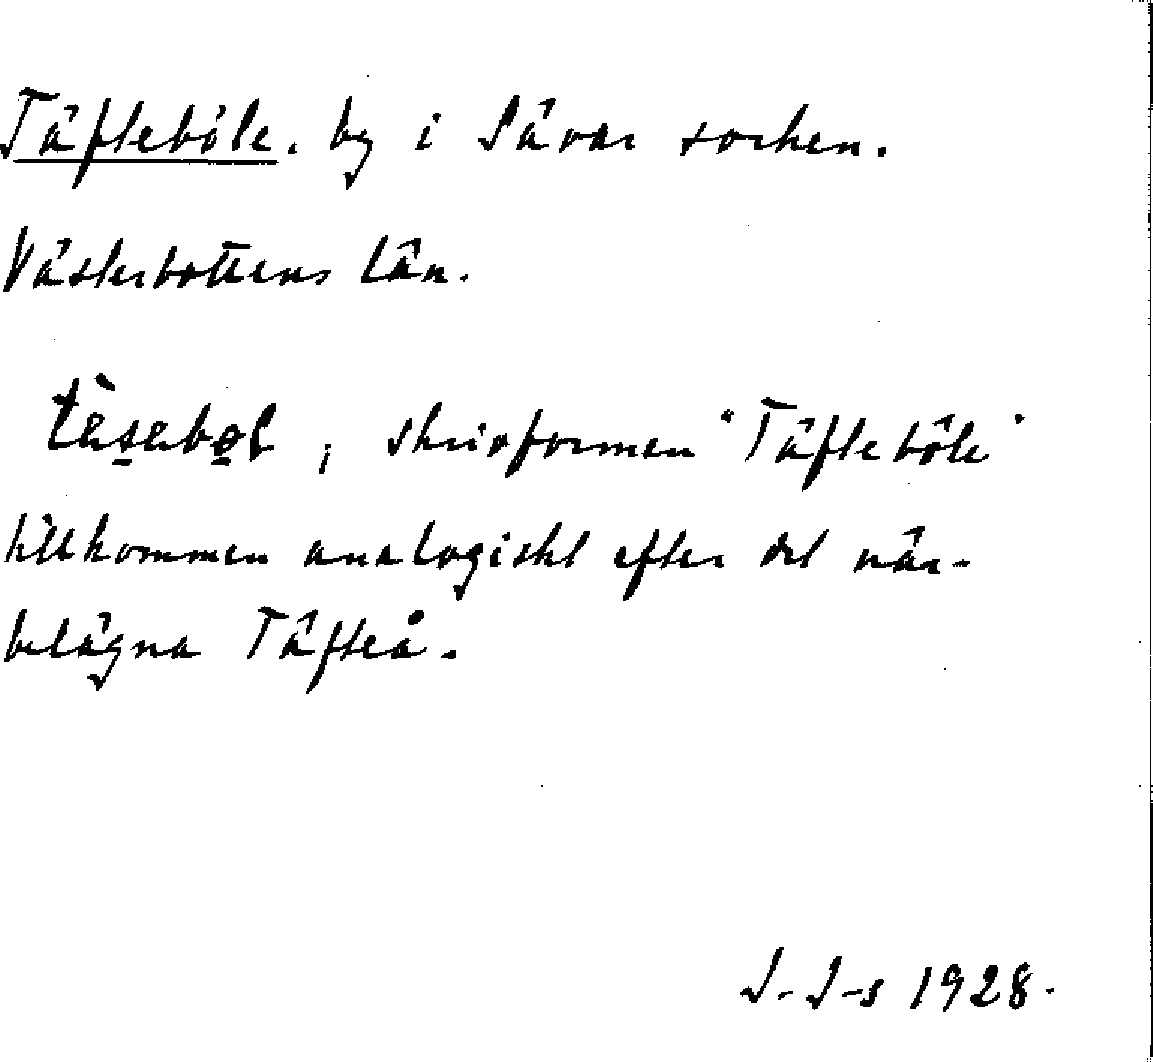 Täfteböle, by i Sävar socken.
Västerbottens län.
tèsebol, skrivformen "Täfteböle"
tillkommen analogiskt efter det när-
belägna Täfteå.
J. J-s 1928.